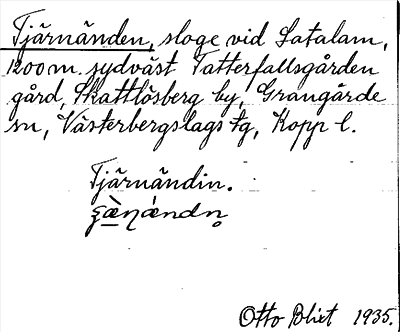 Tjärnänden, sloge vid Satalam,
1200 m. sydväst Tatterfallsgården
gård, Skattlösberg by, Grangärde
sn, Västerbergslags tg, Kopp l.
Tjärnändin.
Otto Blixt 1935.